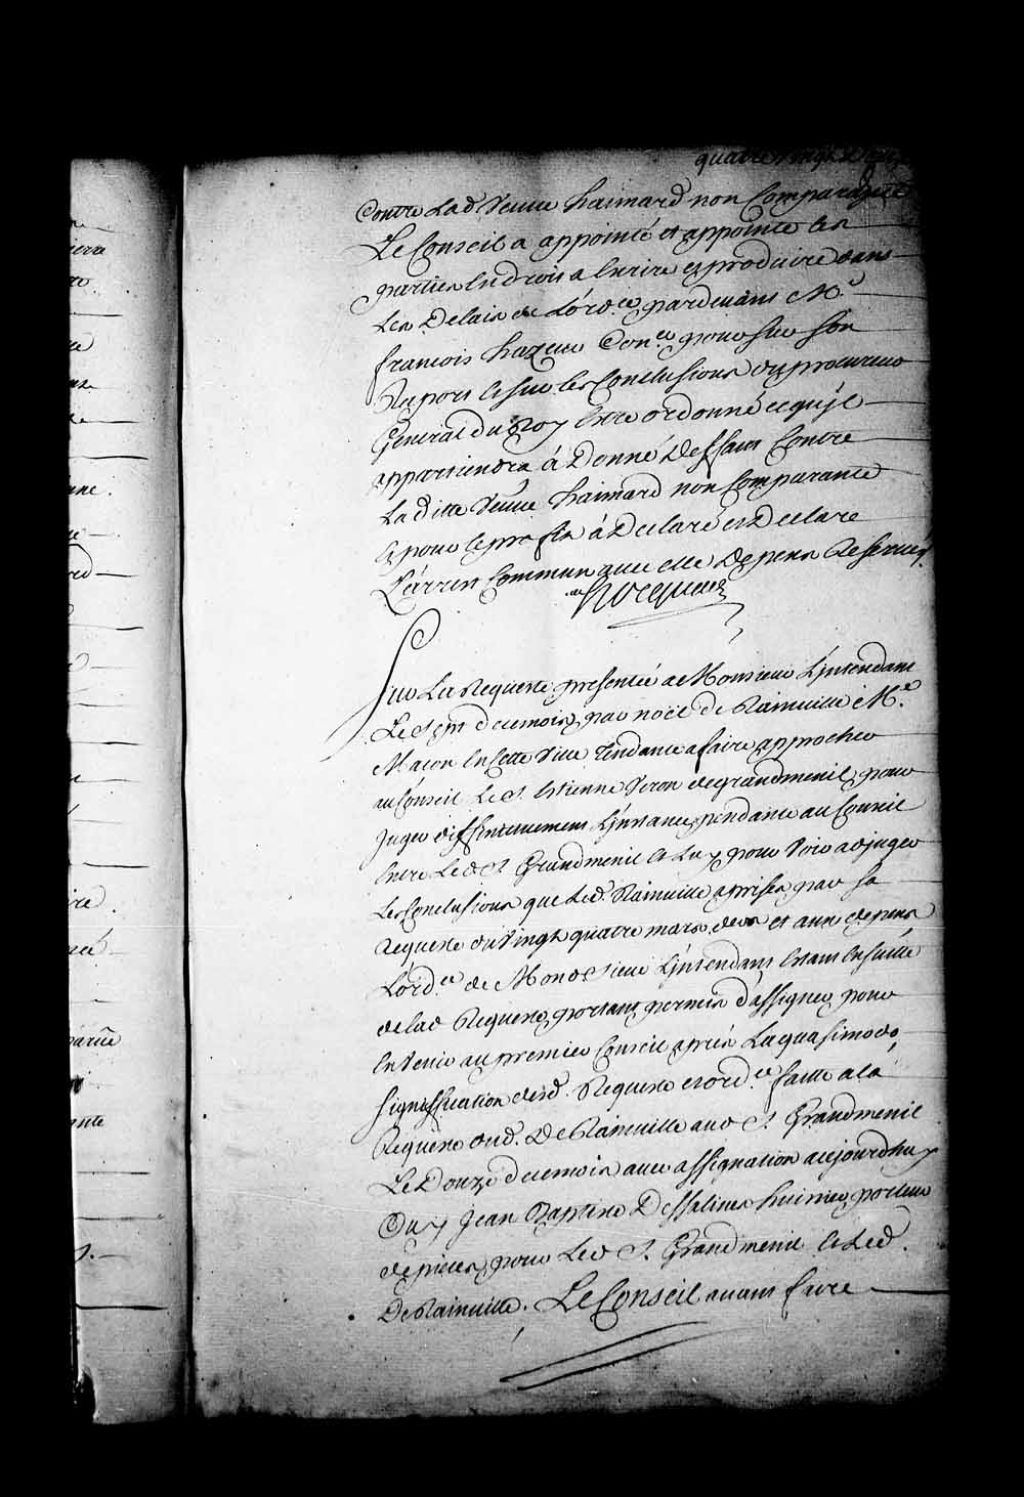 quatre vingt
Contre Lad Veuve haimard non Comparante
Le Conseil a appointé et appointe les
parties En droit a Ecrire et produire dans
Les Delais de L'ord.ce pardevant M.e
francois hazeur Con.er pour sur son
Raport et sur les Conclusions du procureur
General du Roy Estre ordonné ce qu'jl
appartiendra à Donné Deffaut Contre
Laditte Veuve haimard non Comparante
Et pour le profit à Declaré et Declare
L'arrest Commun avec elle Depens Reservez
hocquart
Sur La Requeste presentée a Monsieur L'jntendant
Le du mois par noël de Rainville M.e
Macon En cette Ville Tendante a faire approcher
au Conseil Le S. Estienne Veron de grandmenil pour
Juger diffinitivement L'jnstance pendante au Conseil
Entre Led S. Grandmenil et Luy pour Voir adjuger
Les Conclusions que Led. Rainville a prises par sa
Requeste du Vingt quatre mars der et aux depens
L'ord.ce de Mond Sieur L'jntendant Estant En suitte
de lad Requeste portant permis d'assigner pour
En Venir au premier Conseil après La quasimodo,
signiffication desd. Requeste et ord.ce faitte a la
Requeste dud. De Rainville aud S. Grandmenil
Le Douze du mois avec assignation a cejourdhuy
Ouy Jean Baptiste Dessalines huissier porteur
de pieces pour Led S. Grandmenil et Led.
De Rainville. Le Conseil avant faire